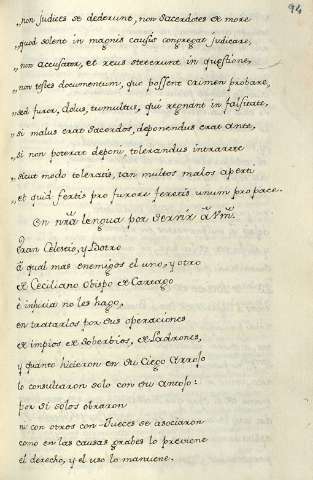 94
„non judices se dederunt, non Sacerdotes ex more
„quod solent in magnis causis congregati judicare,
„non accusator, et reus steterunt in questione,
„non testes documentum, que possent crimen probare,
„sed furor, dolus, tumultus, qui regnant in falsitate,
„si malus erat Sacerdos, deponendus erat ante,
„si non poterat deponi, tolerandus intra rete
„sicut modo toleratis, tam multos malos aperti
„et quid fertis pro furore feratis unum pro pace.
En nr̃a lengua por servir à Vm̃.
Eran Celestio, y
à qual mas enemigos el uno, y otro
de Ceciliano Obispo de Cartago
è injuria no les hago,
en tratarlos por sus operaciones
de impios de soberbios, de Ladrones,
y quanto hicieron en su ciego
lo consultaron solo con su antojo:
por si solos obraron
ni con otros con-Jueces se asociaron
como en las causas grabes lo previene
el derecho, y el uso lo mantiene.